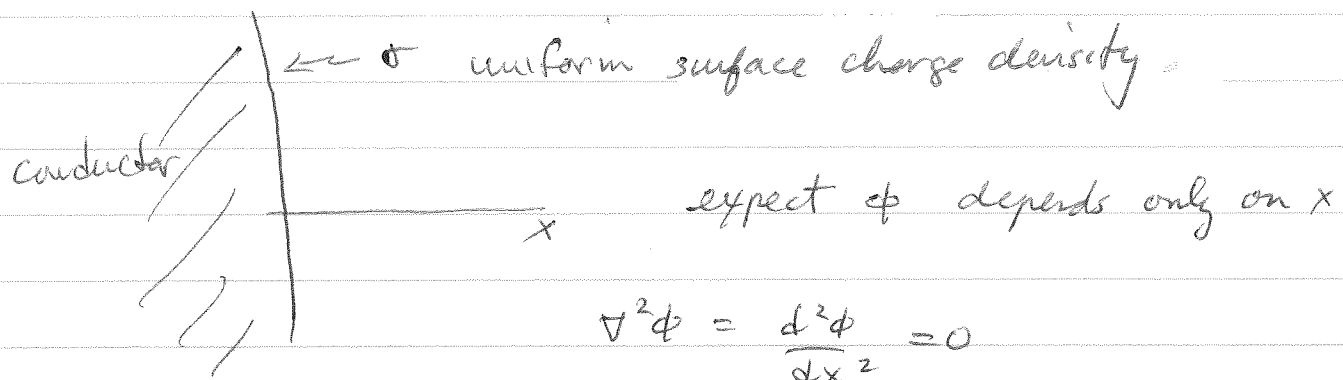 ← σ uniform surface charge density.
conductor
expect φ depends only on x
x
∇²φ = d²φ/dx² = 0